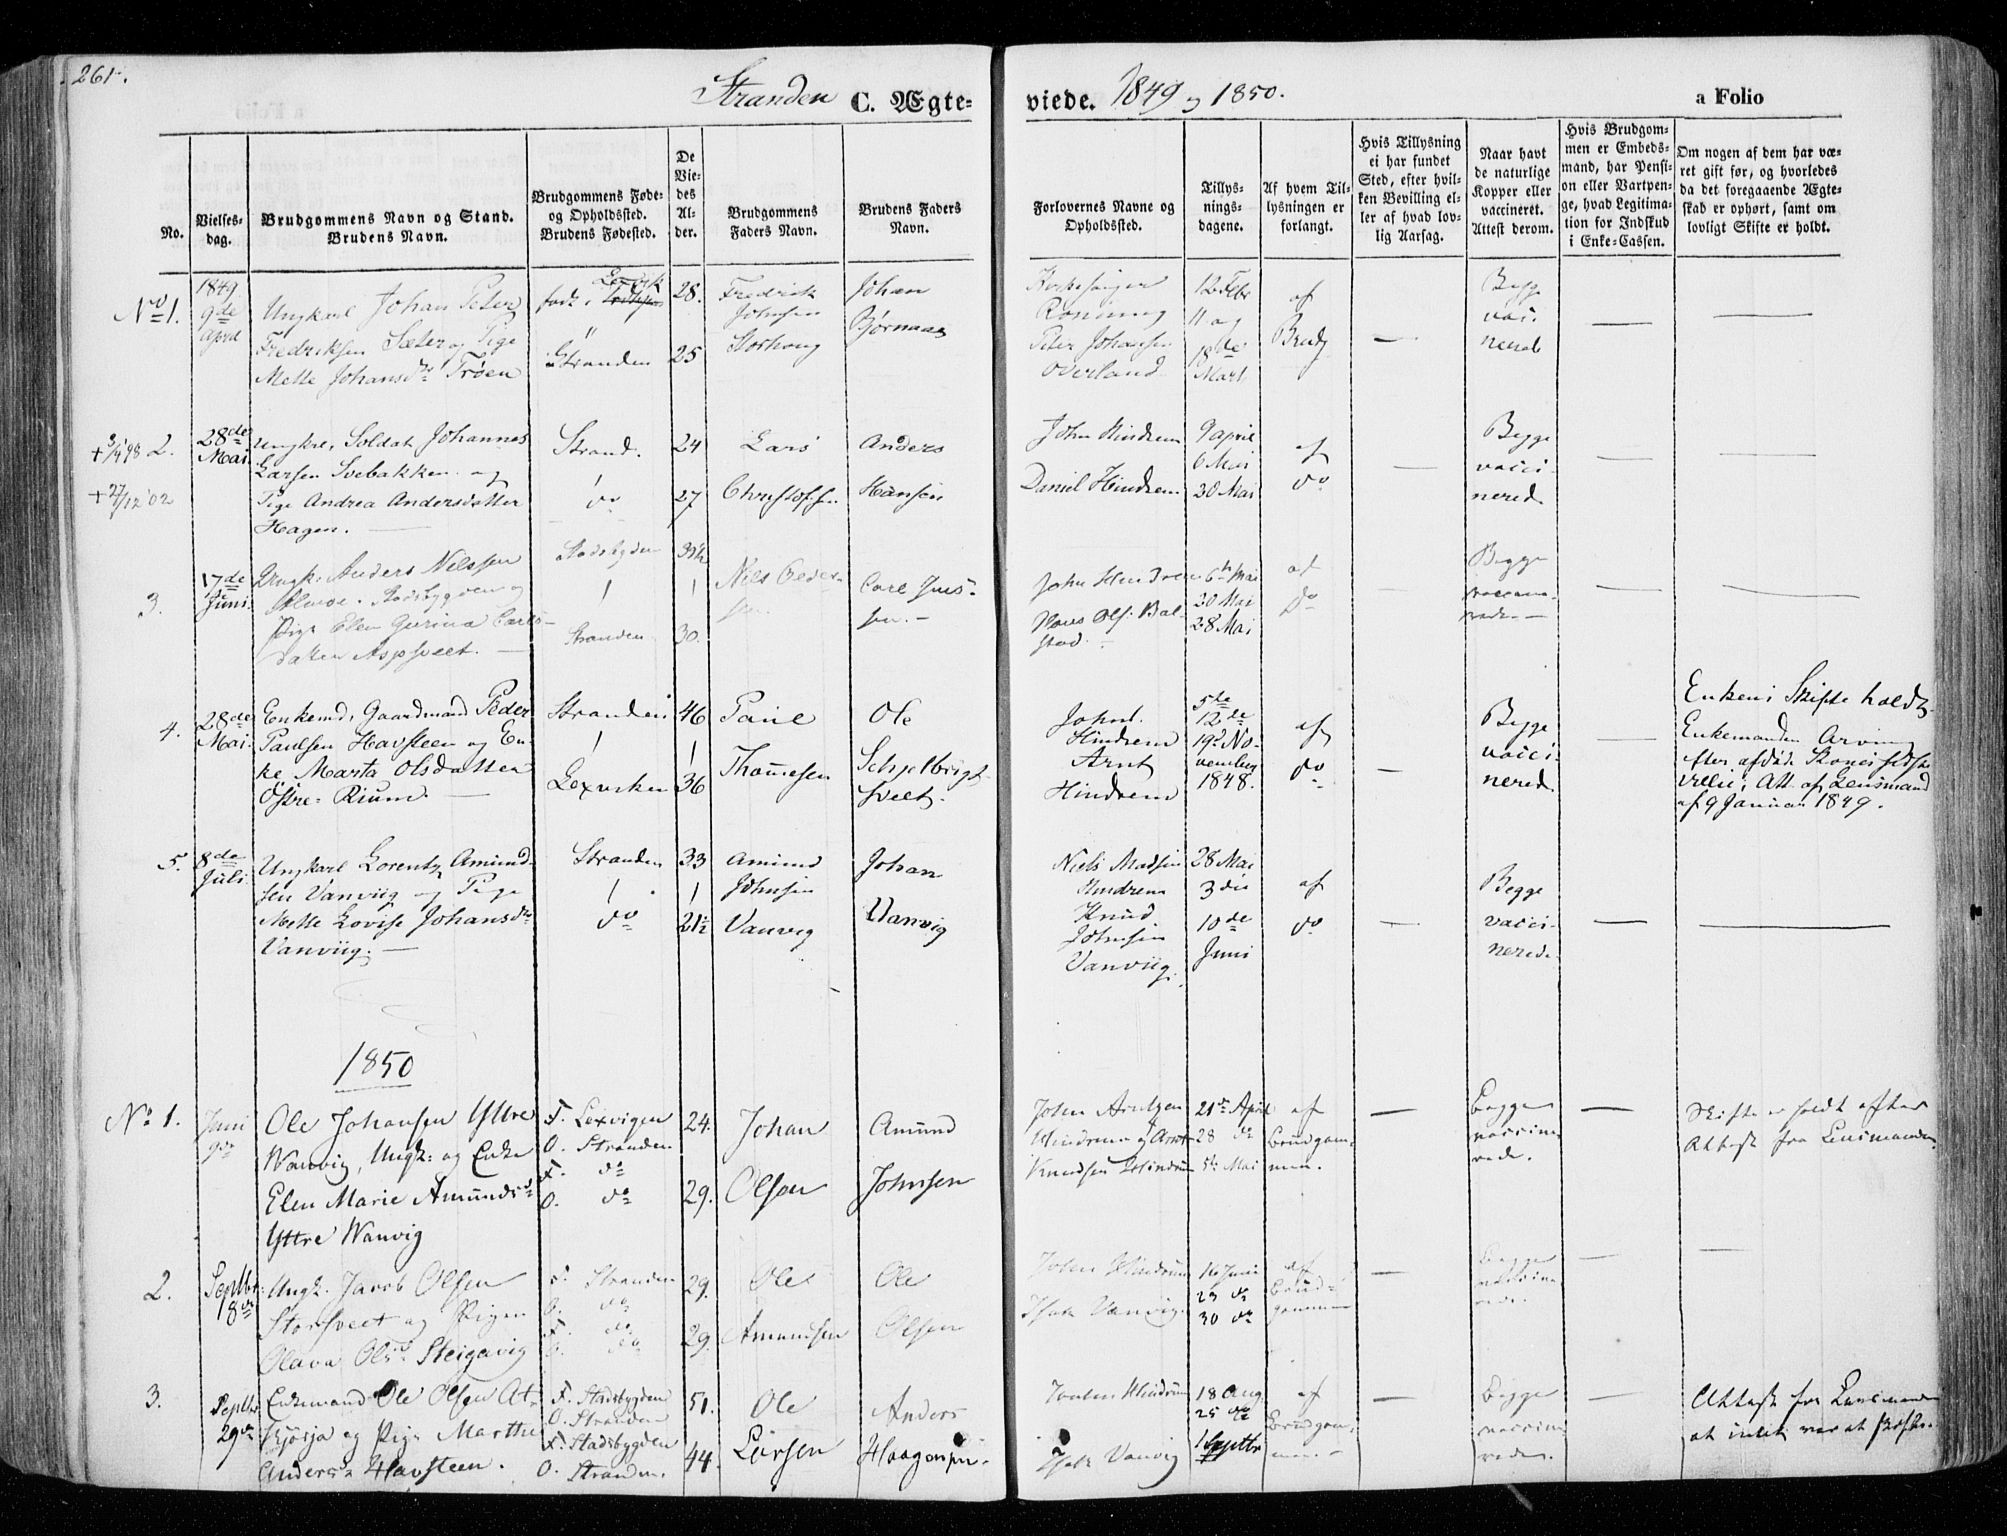 261.
Stranden C. Ægte-
viede. 1849 og 1850.
a Folio
No.
Vielses-
dag.
Brudgommens Navn og Stand.
Brudens Navn.
Brudgommens Føde-
og Opholdssted.
Brudens Fødested.
De
Vie-
des
Al-
der.
Brudgommens
Faders Navn.
Brudens Faders
Navn.
Forlovernes Navne og
Opholdssted.
Tillys-
nings-
dagene.
Af hvem Til-
lysningen er
forlangt.
Hvis Tillysning
ei har fundet
Sted, efter hvil-
ken Bevilling el-
ler af hvad lov-
lig Aarsag.
Naar havt
de naturlige
Kopper eller
vaccineret.
Attest derom.
Hvis Brudgom-
men er Embeds-
mand, har Pensi-
on eller Vartpen-
ge, hvad Legitima-
tion for Indskud
i Enke-Cassen.
Om nogen af dem har væ-
ret gift før, og hvorledes
da det foregaaende Ægte-
skab er ophørt, samt om
lovligt Skifte er holdt.
No 1.
1849
9de
April
Ungkarl Johan Peter
Fredriksen Sæter og Pige
Mette Johansdr Trøen
født i Lexvik
Stranden
28.
25
Fredrik
Johnsen
Storhoug
Johan
Bjørnaas
Kirkesanger
Rønning
Peter Johansen
Overland
12 Febr
11 og
18de
Mart
af
Brudg
Begge
vaci-
nered
+ 3/4 98
+ 27/12 02
2.
28de
Mai
Ungkrl, Soldat Johannes
Larsen Svebakken og
Pige Andrea Andersdatter
Hagen.
Strand.
do
24
27
Lars
Christoffsen
Anders
Hansen
John Hindrem
Daniel Hindrem
9 April
6 Mai
20 Mai
af
do
Begge
vacci-
nered
3.
17de
Juni
Ungk. Anders Nilssen
Stadsbygden og
Pige Elen Gurina Carls-
datter Aspsveet.
Stadsbygden
Stranden
30.
Nils Peder-
sen.
Carl Jens-
sen.
John Hindrem
Hans Ols. Bal-
stad.
6te Mai
20 Mai
28 Mai
af
do
Begge
4.
28de
Mai
Enkemd, Gaardmand Peder
Paulsen Havsteen og En-
ke Marta Olsdatter
Østre-Rium.
Stranden
Lexviken
46
36
Paul
Thomesen
Ole
Schjelbrigt-
sveet.
John
Hindrem
Arnt
Hindrem
5de
12de
19de No-
vember
1848.
af
do
Begge
vacci-
nered.
Enken i Skifte holdt,
Enkemanden Arving
efter afdøde Kones
Att. af Lensmand
af 9 Januar 1849.
5.
8de
Juli
Ungkarl Lorentz Amund-
sen Vanviig og Pige
Mette Lovise Johansdr
Vanviig.
Stranden
do
33
21½
Amund
Johnsen
Vanvig
Johan
Vanvig
Niels Madsen
Hindrem
Knud
Johnsen
Vanviig.
28 Mai
3die
10de
Juni
af
do
Begge
vacci-
nerede
1850
No 1.
Juni
9de
Ole Johansen Yttre
Wanvig, Ungk: og Enke
Elen Marie Amundsd
Yttre Wanvig
F. Lexvigen
O. Stranden
F. do
O. do
24.
29.
Johan
Olsen
Amund
Johnsen
John Arntzen
Hindrem og Arnt
Knudsen Hindrum
21de April
28 do
5te Mai
af
Brudgom-
men.
Begge
vaccine-
rede.
Skifte er holdt efter
Attest fra Lensmanden.
2.
Septbr
18de
Ungk. Jacob Olsen
Storsveet og Pigen
Olava Olsd Steigavig
F. Stranden
O. do
F. do
O. do
29.
29.
Ole
Amundsen
Ole
Olsen
John Hindrum
Isak Vanvig
16 Juni
23 do
30 do
af
Brud-
gommen
Begge
vaccine-
rede.
3.
Septbr
29de
Enkemand Ole Olsen At-
skjørja og Pige Marthe
Andersd Havsteen.
F. Stadsbygden
O. Stranden
F. Stadsbygden
O. Stranden.
51.
44.
Ole
Larsen
Anders
Haagensen.
Hindrum
Isak Vanvig
18 Aug.
25 do
1 Septbr
af
Brudgom-
men.
Begge
vaccine-
rede.
Attest fra Lensmanden
at intet var at skifte.